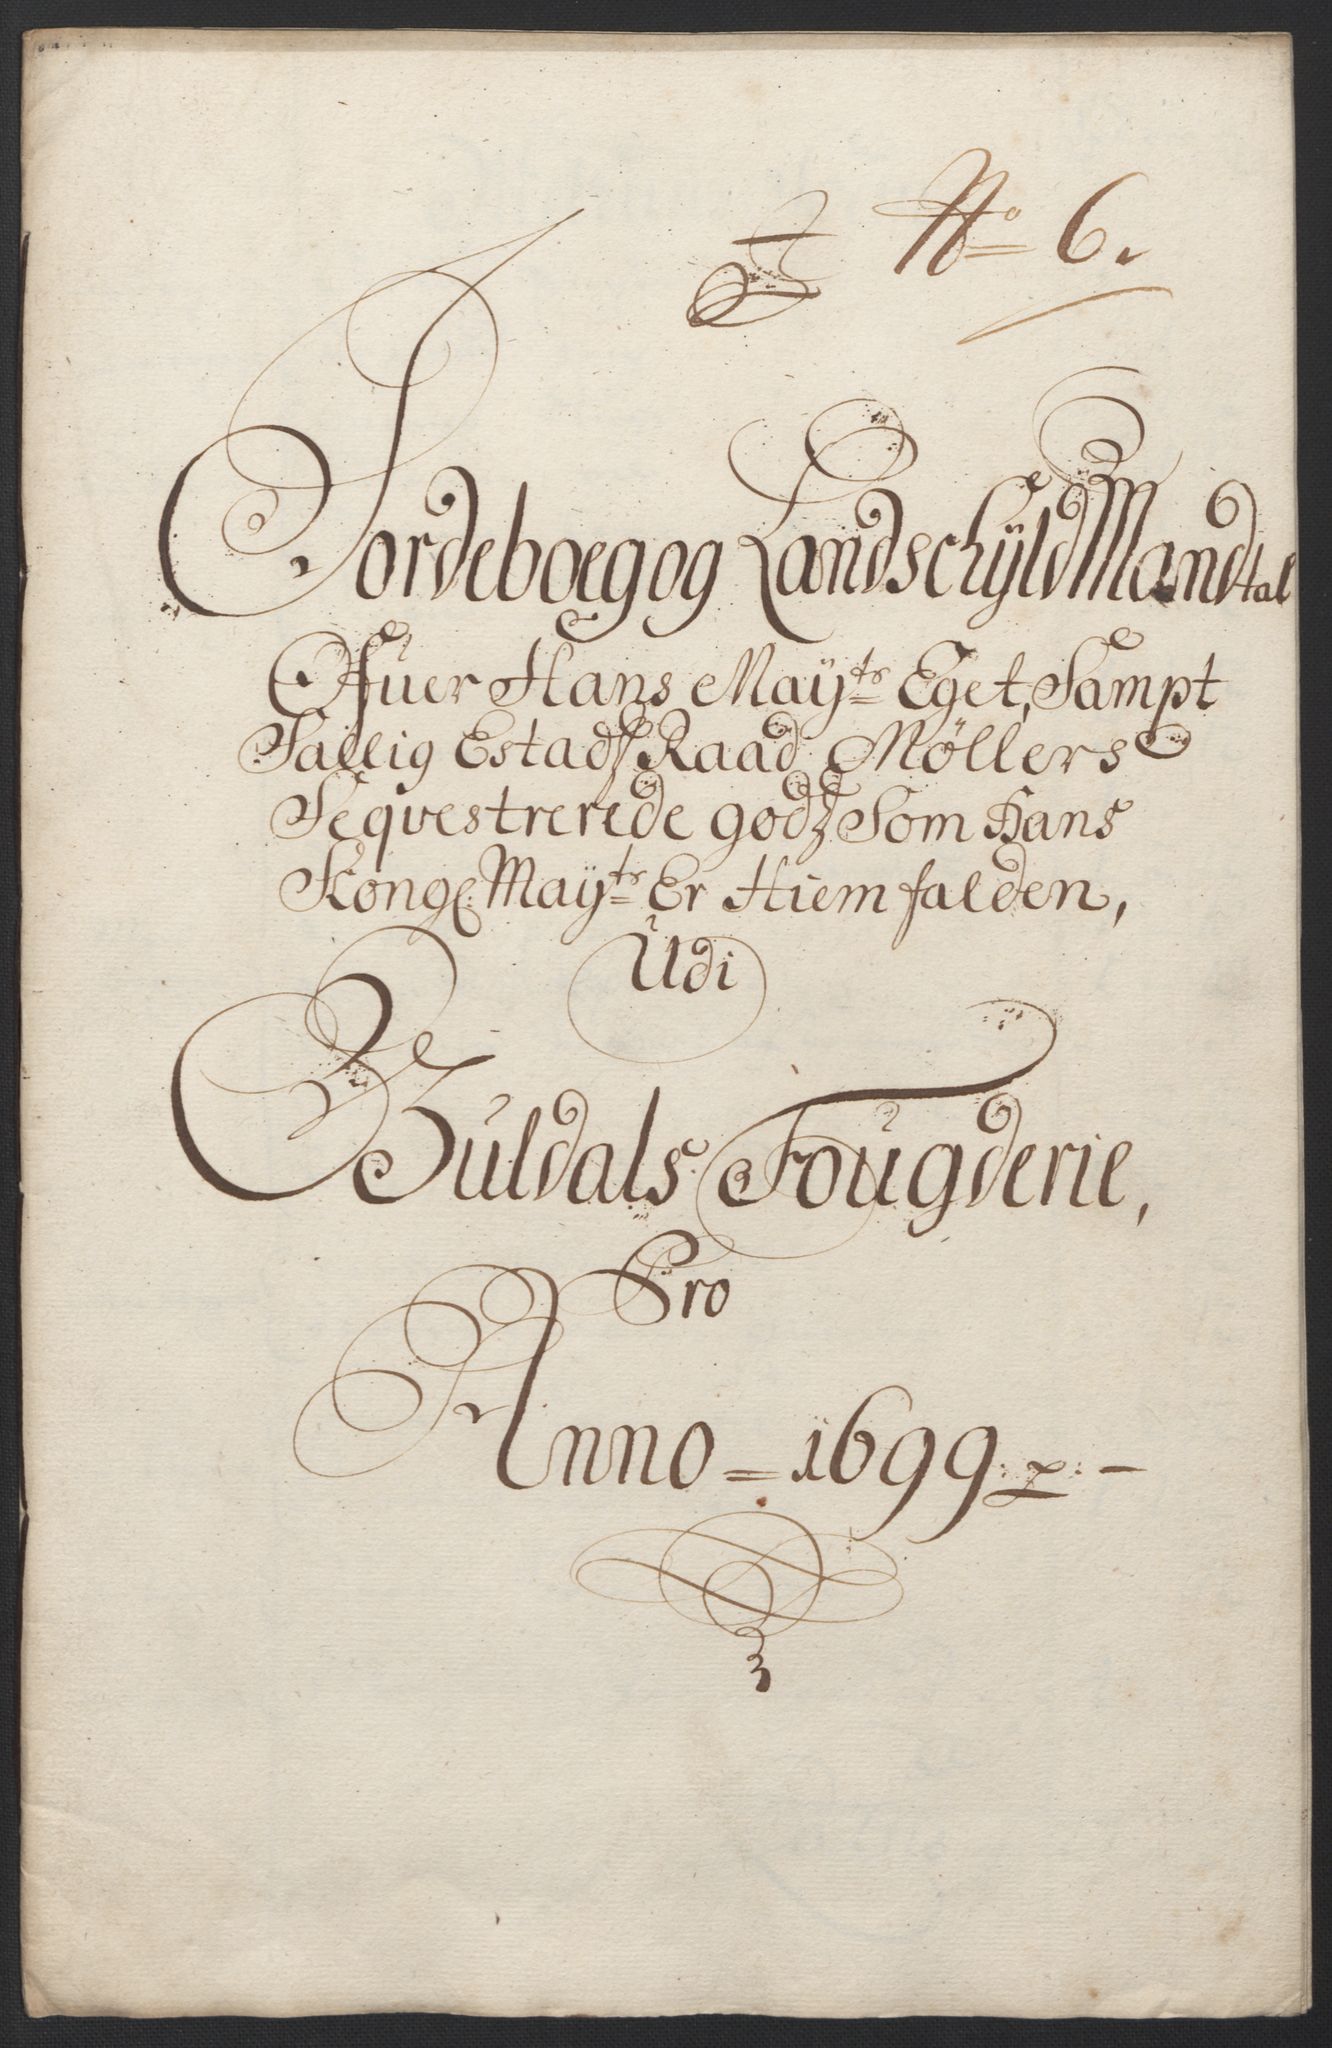 No 6.
Jordeboeg og Landschÿld Mandtal
Ofuer Hans Maÿts Eget, Sampt
Sallig Estads Raad Møllers
Seqvestrerede godz Som Hans
Kongl: Maÿts Er Hiemfalden,
Udi
Guldals Fougderie,
Pro
Anno = 1699